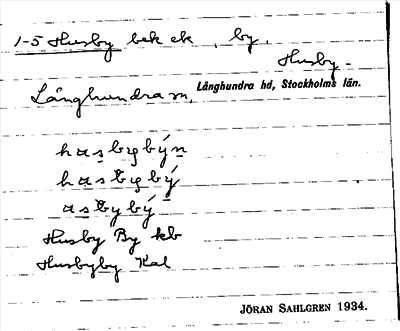 1-5 Husby bek ek, by.
Husby-
Långhundra sn, Långhundra hd, Stockholms län.
hasbybýn
hasbybý
asbybý
Husby By kb
Husbyby Kal
JÖRAN SAHLGREN 1934.